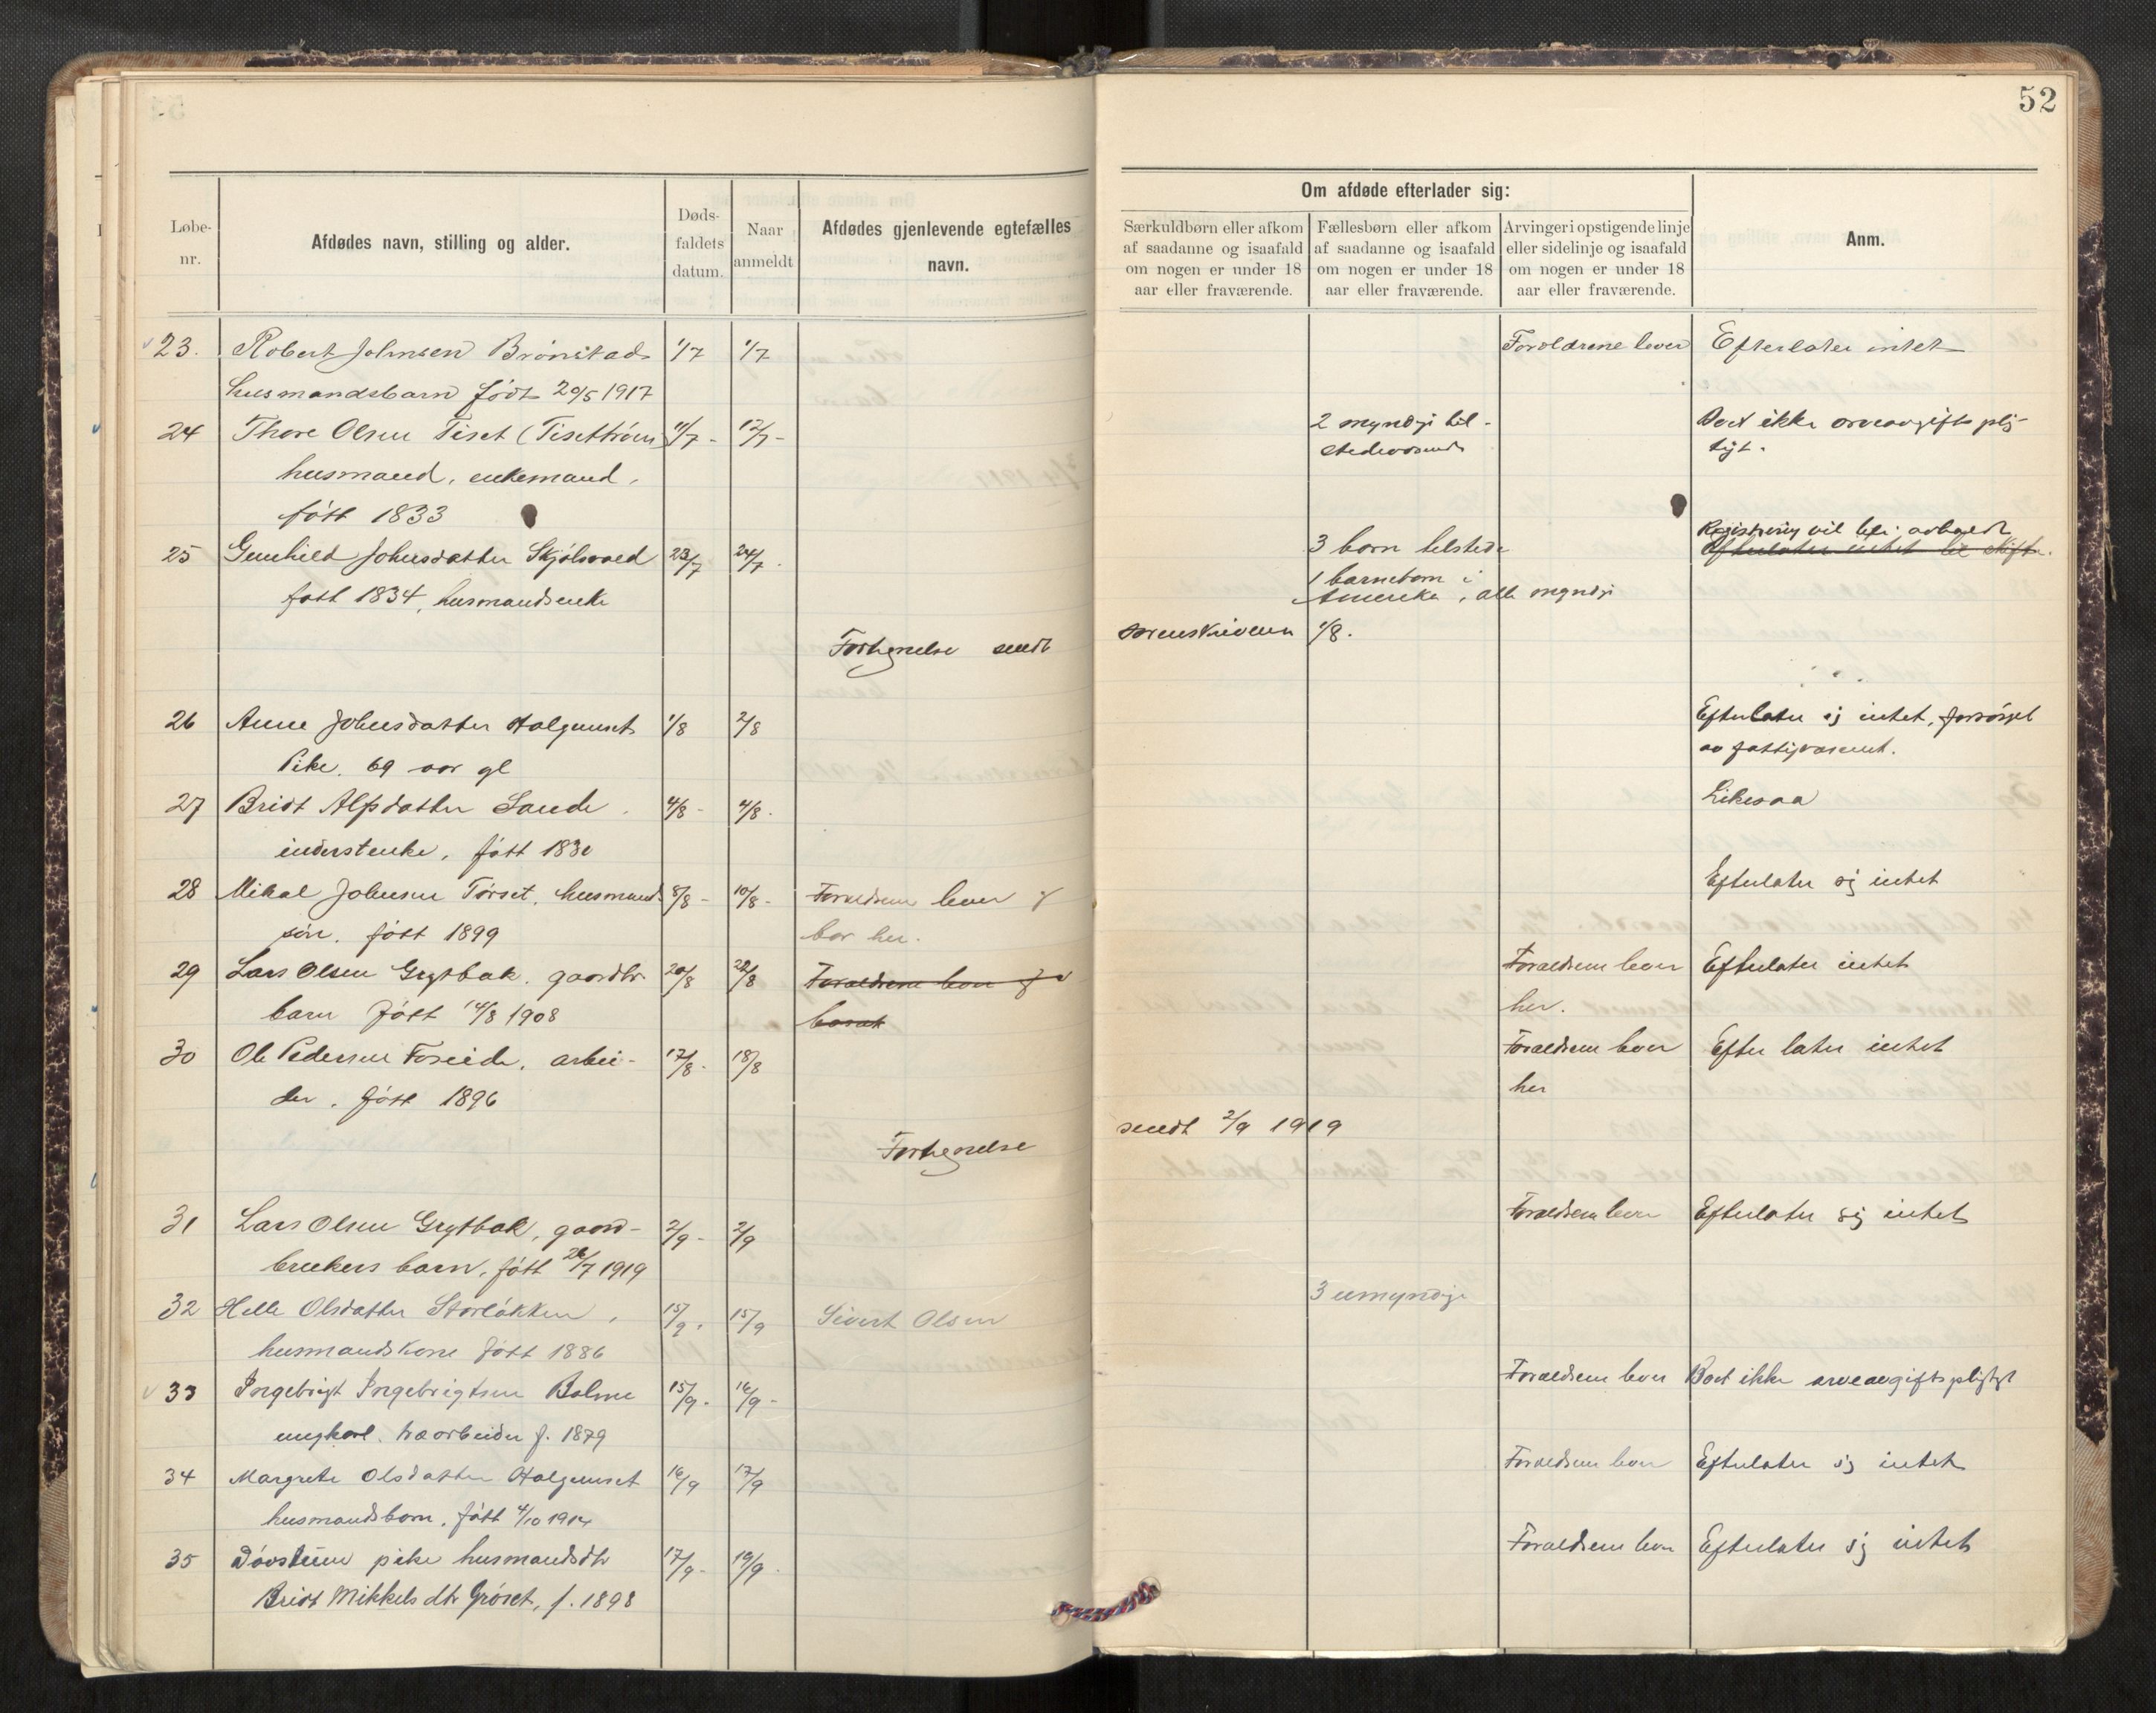 52
Om afdøde efterlader sig:
Løbe-
nr.
Afdødes navn, stilling og alder.
Døds-
faldets
datum.
Naar
anmeldt
Afdødes gjenlevende egtefælles
navn.
Særkuldbørn eller afkom
af saadanne og isaafald
om nogen er under 18
aar eller fraværende.
Fællesbørn eller afkom
af saadanne og isaafald
om nogen er under 18
aar eller fraværende.
Arvinger i opstigende linje
eller sidelinje og isaafald
om nogen er under 18
aar eller fraværende.
Anm.
23. Robert Johnsen Brønstad 1/7 1/7 Foreldrene lever Efterlater intet
husmandsbarn født 20/5 1917
24 Thore Olsen Tiset (Tisettrøen) 11/7 - 12/7 - 2 myndige til- Boet ikke arveavgiftsplig-
husmand, enkemand, stedeværende tigt.
født 1833
25 Gunhild Johnsdatter Skjølsvold 23/7 24/7. 3 barn tilstede Registrering vil bli avholdt
Efterlater intet til skifte.
født 1834, husmandsenke 1 barnebarn i
Amerika, alle myndige
Fortegnelse sendt sorenskriveren 1/8.
26 Anne Johnsdatter Halgunset 1/8 2/8 Efterlater sig intet, forsørget
Pike. 69 aar gl av fattigvæsenet.
27 Bridt Alfsdatter Sande. 4/8 - 4/8. Likesaa
inderstenke, født 1830
28 Mikal Johnsen Tørset, husmands 8/8 - 10/8 - Forældrene lever & Efterlater sig intet
søn. født 1899 bor her.
29 Lars Olsen Grytbak. gaardbr 20/8 22/8 Forældrene lever Forældrene lever Efterlater intet
barn født 14/8 1908 her.
30 Ole Pedersen Foseide, arbei- 17/8. 18/8 Forældrene lever Efterlater intet
der. født 1896 her
Fortegnelse sendt 2/9 1919
31 Lars Olsen Grytbak, gaard- 2/9 - 2/9 Forældrene lever Efterlater sig intet
brukers barn, født 26/7 1919
32 Helle Olsdatter Storløkken, 15/9. 15/9 Sivert Olsen 3 umyndige
husmandskone født 1886
33 Ingebrigt Ingebrigtsen Bolme 15/9. 16/9 - Forældrene lever Boet ikke arveavgiftspligtigt
ungkarl. træarbeider f. 1879
34 Margrete Olsdatter Halgunset 16/9 17/9 Forældrene lever Efterlater sig intet
husmandsbarn, født 4/10 1914
35 Døvstum pike husmandsdtr 17/9 - 19/9. Forældrene lever Efterlater sig intet
Bridt Mikkelsdtr Grøset, f. 1898